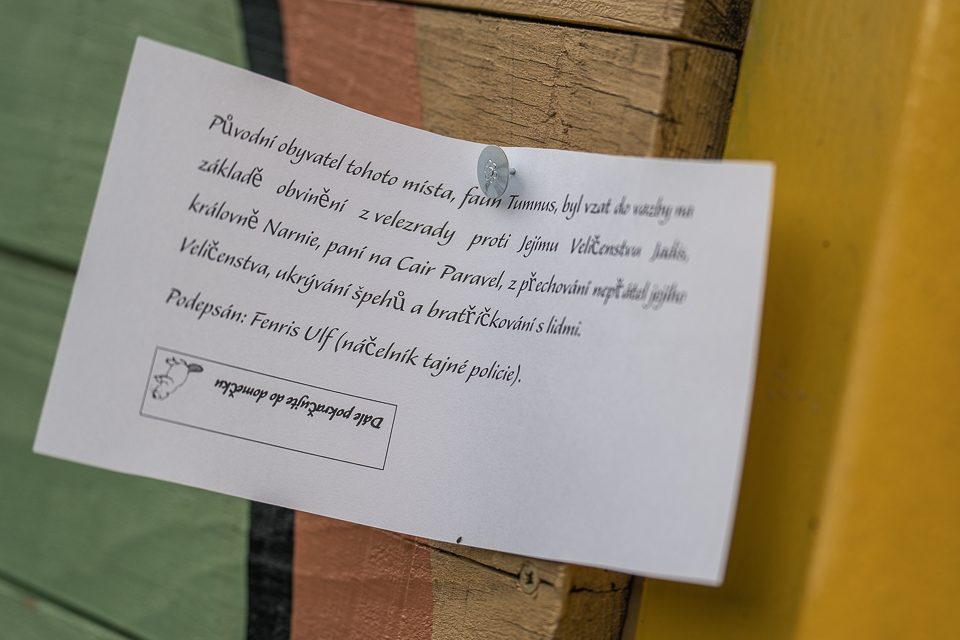 Původní obyvatel tohoto místa, faun Tumnus, byl vzat do vazby na
základě obvinění z velezrady proti Jejímu Veličenstvu Jadis,
královně Narnie, paní na Cair Paravel, z přechování nepřátel jejího
Veličenstva, ukrývání špehů a bratříčkování s lidmi.
Podepsán: Fenris Ulf (náčelník tajné policie).
Dále pokračujte do domečku